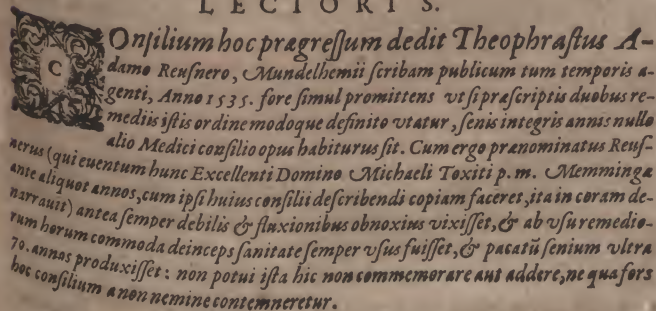 LECTORIS.
COnſilium hoc prægreſſum dedit Theophraſtus A-
damo Reuſnero, Mundelhemii ſcribam publicum tum temporis a-
genti, Anno 1535. fore ſimul promittens vt ſi præſcriptis duobus re-
mediis iſtis ordine modoque definito vtatur, ſenis integris annis nullo
alio Medici conſilio opus habiturus ſit. Cum ergo prænominatus Reuſ-
nerus (qui euentum hunc Excellenti Domino Michaeli Toxiti p. m. Memmingæ
ante aliquot annos, cum ipſi huius conſilii deſcribendi copiam faceret, ita in coram de-
narrauit) antea ſemper debilis & fluxionibus obnoxius vixiſſet, & ab vſu remedio-
rum horum commoda deinceps ſanitate ſemper vſus fuiſſet, & pacatū ſenium vltra
70. annos produxiſſet: non potui iſta hic non commemorare aut addere, ne qua fors
hoc conſilium a non nemine contemneretur.